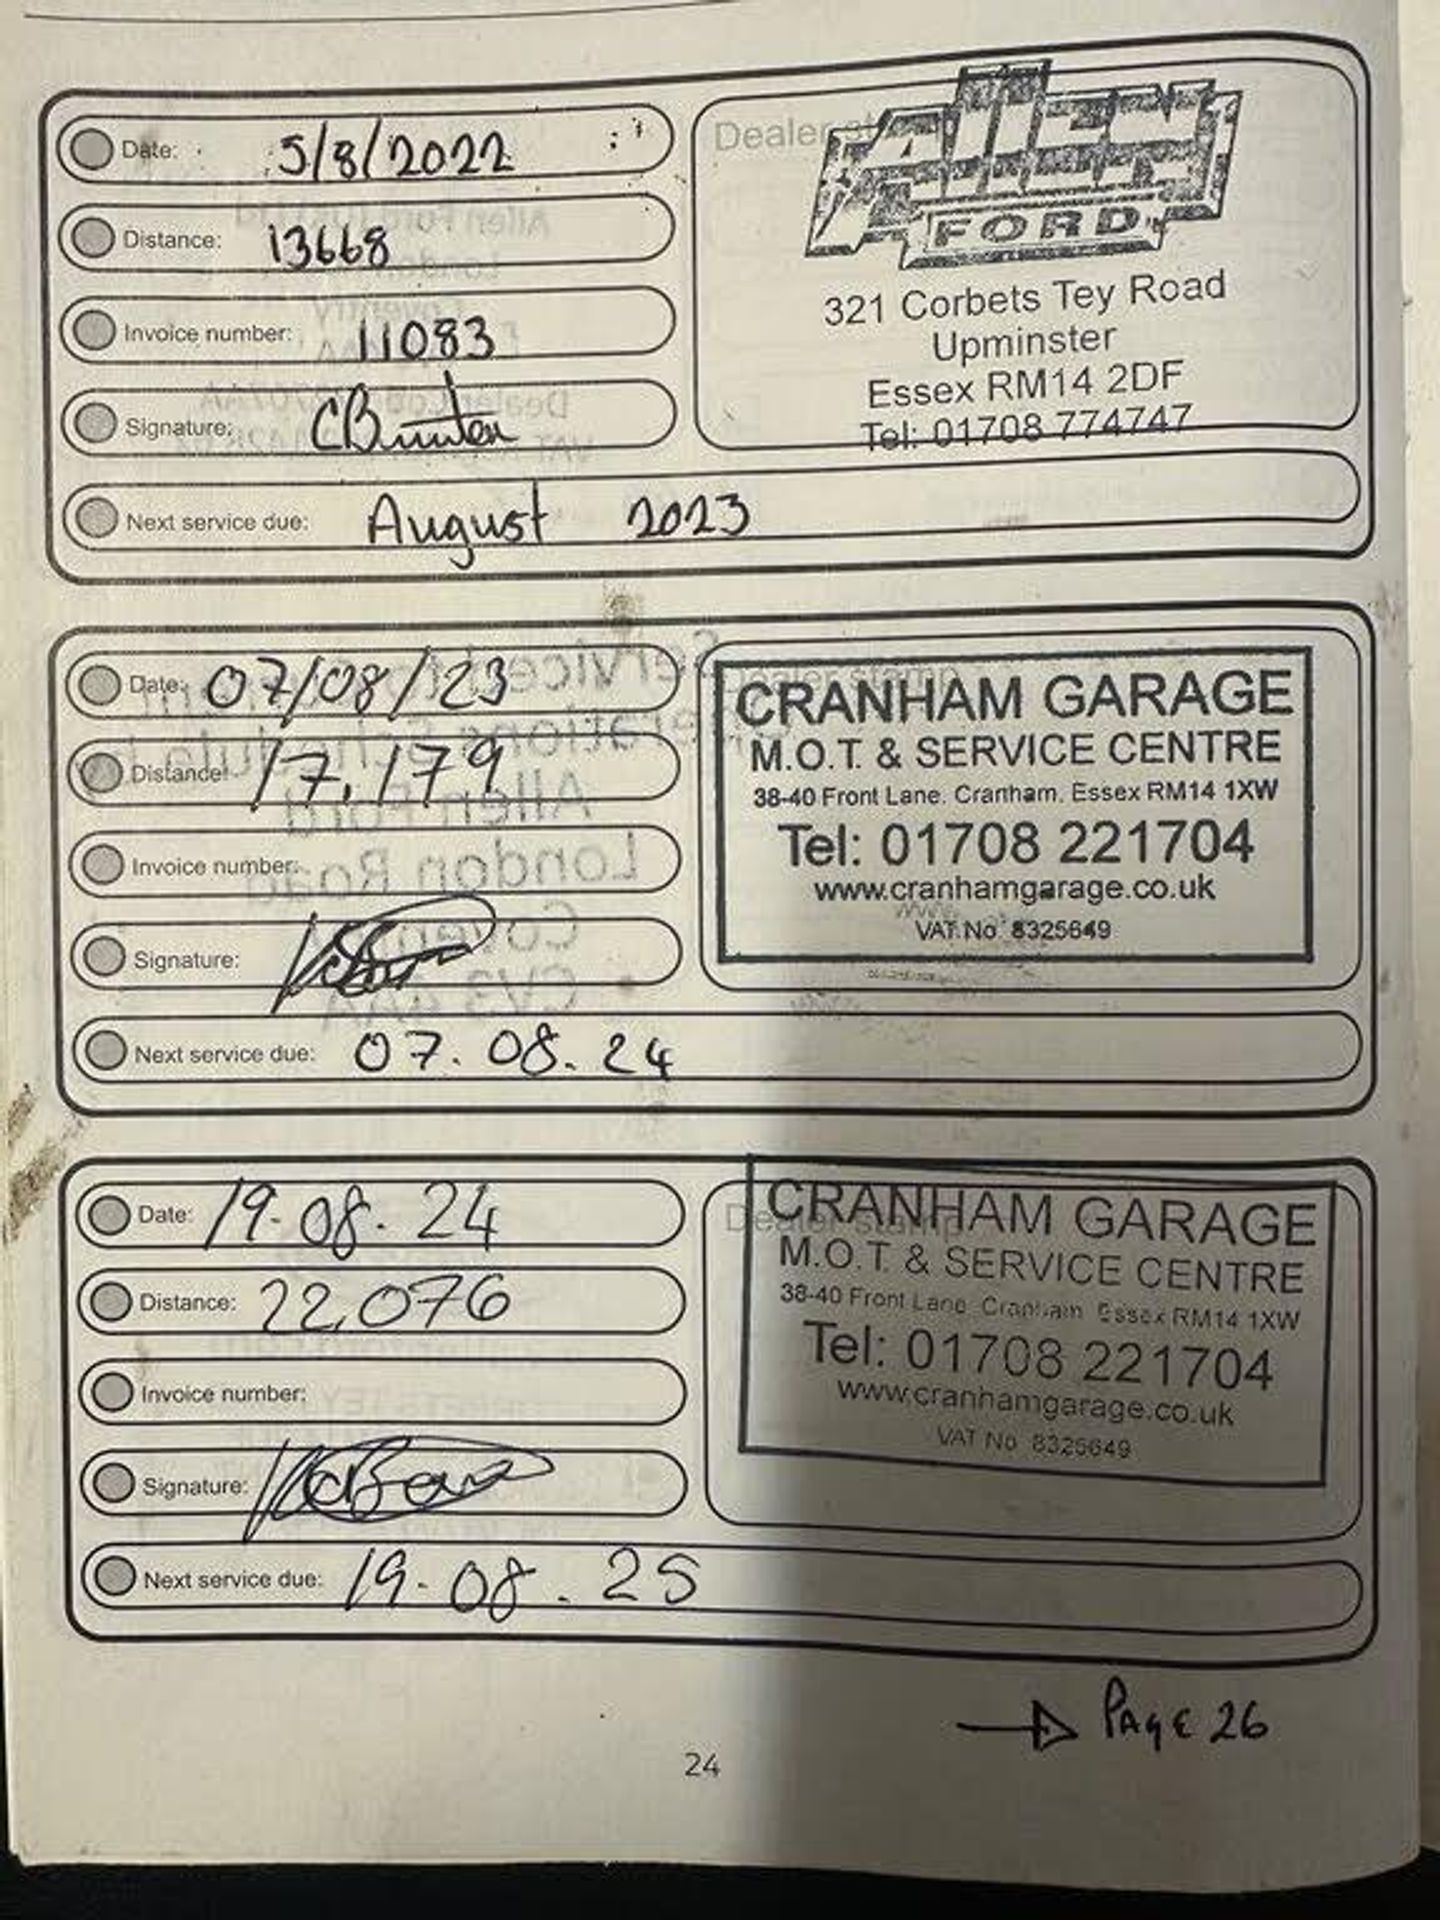 Date: 5/8/2022
Distance: 13668
Invoice number: 11083
Signature:
Next service due: August 2023
Dealer
ALLEN
FORD
321 Corbets Tey Road
Upminster
Essex RM14 2DF
Tel: 01708 774747
Date: 07/08/23
Distance: 17,179
Invoice number:
Signature:
Next service due: 07.08.24
Dealer stamp
CRANHAM GARAGE
M.O.T. & SERVICE CENTRE
38-40 Front Lane, Cranham, Essex RM14 1XW
Tel: 01708 221704
www.cranhamgarage.co.uk
VAT No 8325649
Date: 19.08.24
Distance: 22,076
Invoice number:
Signature:
Next service due: 19.08.25
Dealer stamp
CRANHAM GARAGE
M.O.T. & SERVICE CENTRE
38-40 Front Lane, Cranham, Essex RM14 1XW
Tel: 01708 221704
www.cranhamgarage.co.uk
VAT No 8325649
PAGE 26
24